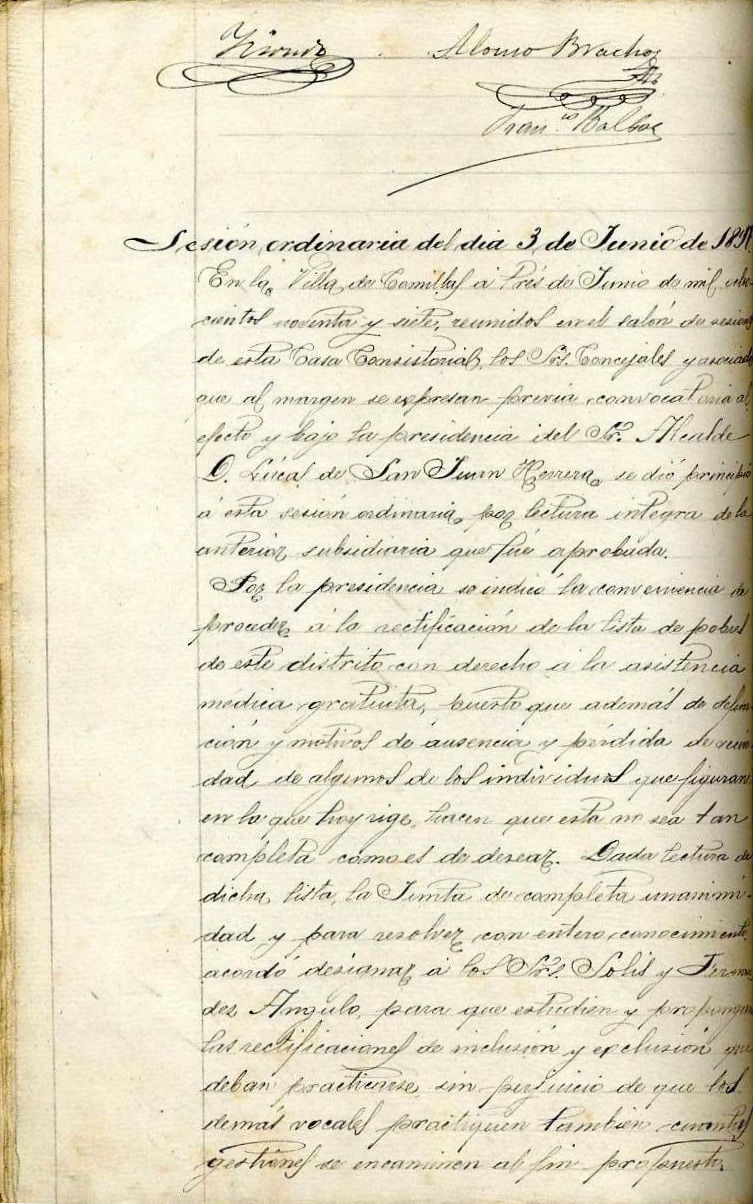 Alonso Bracho
Fran.co Balboa
Sesión ordinaria del dia 3 de Junio de 1897
En la Villa de Comillas á tres de Junio de mil ocho
cientos noventa y siete, reunidos en el salón de sesiones
de esta Casa Consistorial, los Srs. Concejales y asociados
que al margen se expresan previa convocatoria al
efecto y bajo la presidencia del Sr. Alcalde
D. Lúcas de San Juan Herrera, se dió principio
á esta sesión ordinaria, por lectura integra de la
anterior subsidiaria que fué aprobada.
Por la presidencia se indicó la conveniencia de
proceder á la rectificación de la lista de pobres
de este distrito con derecho á la asistencia
medica gratuita, puesto que además de defun
ción y motivos de ausencia y pérdida de vecin
dad de algunos de los individuos que figuran
en la que hoy rige, hacen que esta no sea tan
completa como es de desear. Dada lectura de
dicha lista, la Junta de completa unanimi-
dad y para resolver con entero conocimiento,
acordó designar á los Srs. Solis y Fernan
dez Angulo, para que estudien y propongan
las rectificaciones de inclusión y exclusión que
deban practicarse, sin perjuicio de que los
demás vocales practiquen tambien cuantas
gestiones se encaminen al fin propuesto.